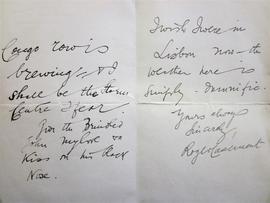 Congo row is
brewing & I
shall be the storm
Centre I fear.
Give the Brindled
John my love &
Kiss on his Black
Nose.
I wish I were in
Lisbon now – the
weather here is
simply –
Yours always
Sincerely
Roger Casement